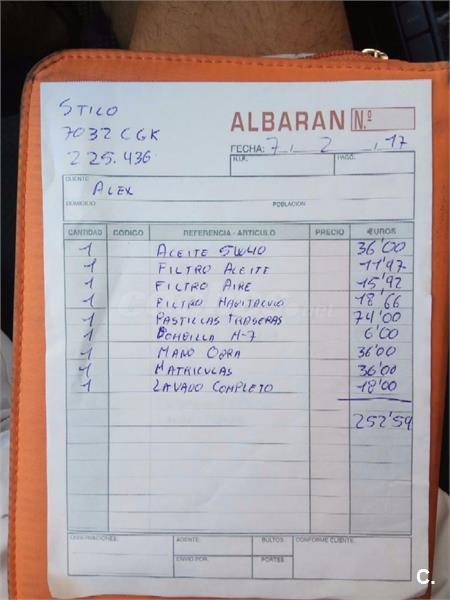 STILO
7032 CGK
225.436
ALBARAN N.º
FECHA: 7 / 2 / 17
N.I.F. PAGO:
CLIENTE:
ALEX
DOMICILIO POBLACION
CANTIDAD CODIGO REFERENCIA - ARTICULO PRECIO €UROS
1 ACEITE 5W40 36'00
1 FILTRO ACEITE 11'97
1 FILTRO AIRE 15'92
1 FILTRO HABITACULO 18'66
1 PASTILLAS TRASERAS 74'00
1 BOMBILLA H-7 6'00
1 MANO OBRA 36'00
1 MATRICULAS 36'00
1 LAVADO COMPLETO 18'00
252'59
OBSERVACIONES: AGENTE: BULTOS CONFORME CLIENTE:
ENVIO POR: PORTES
C.